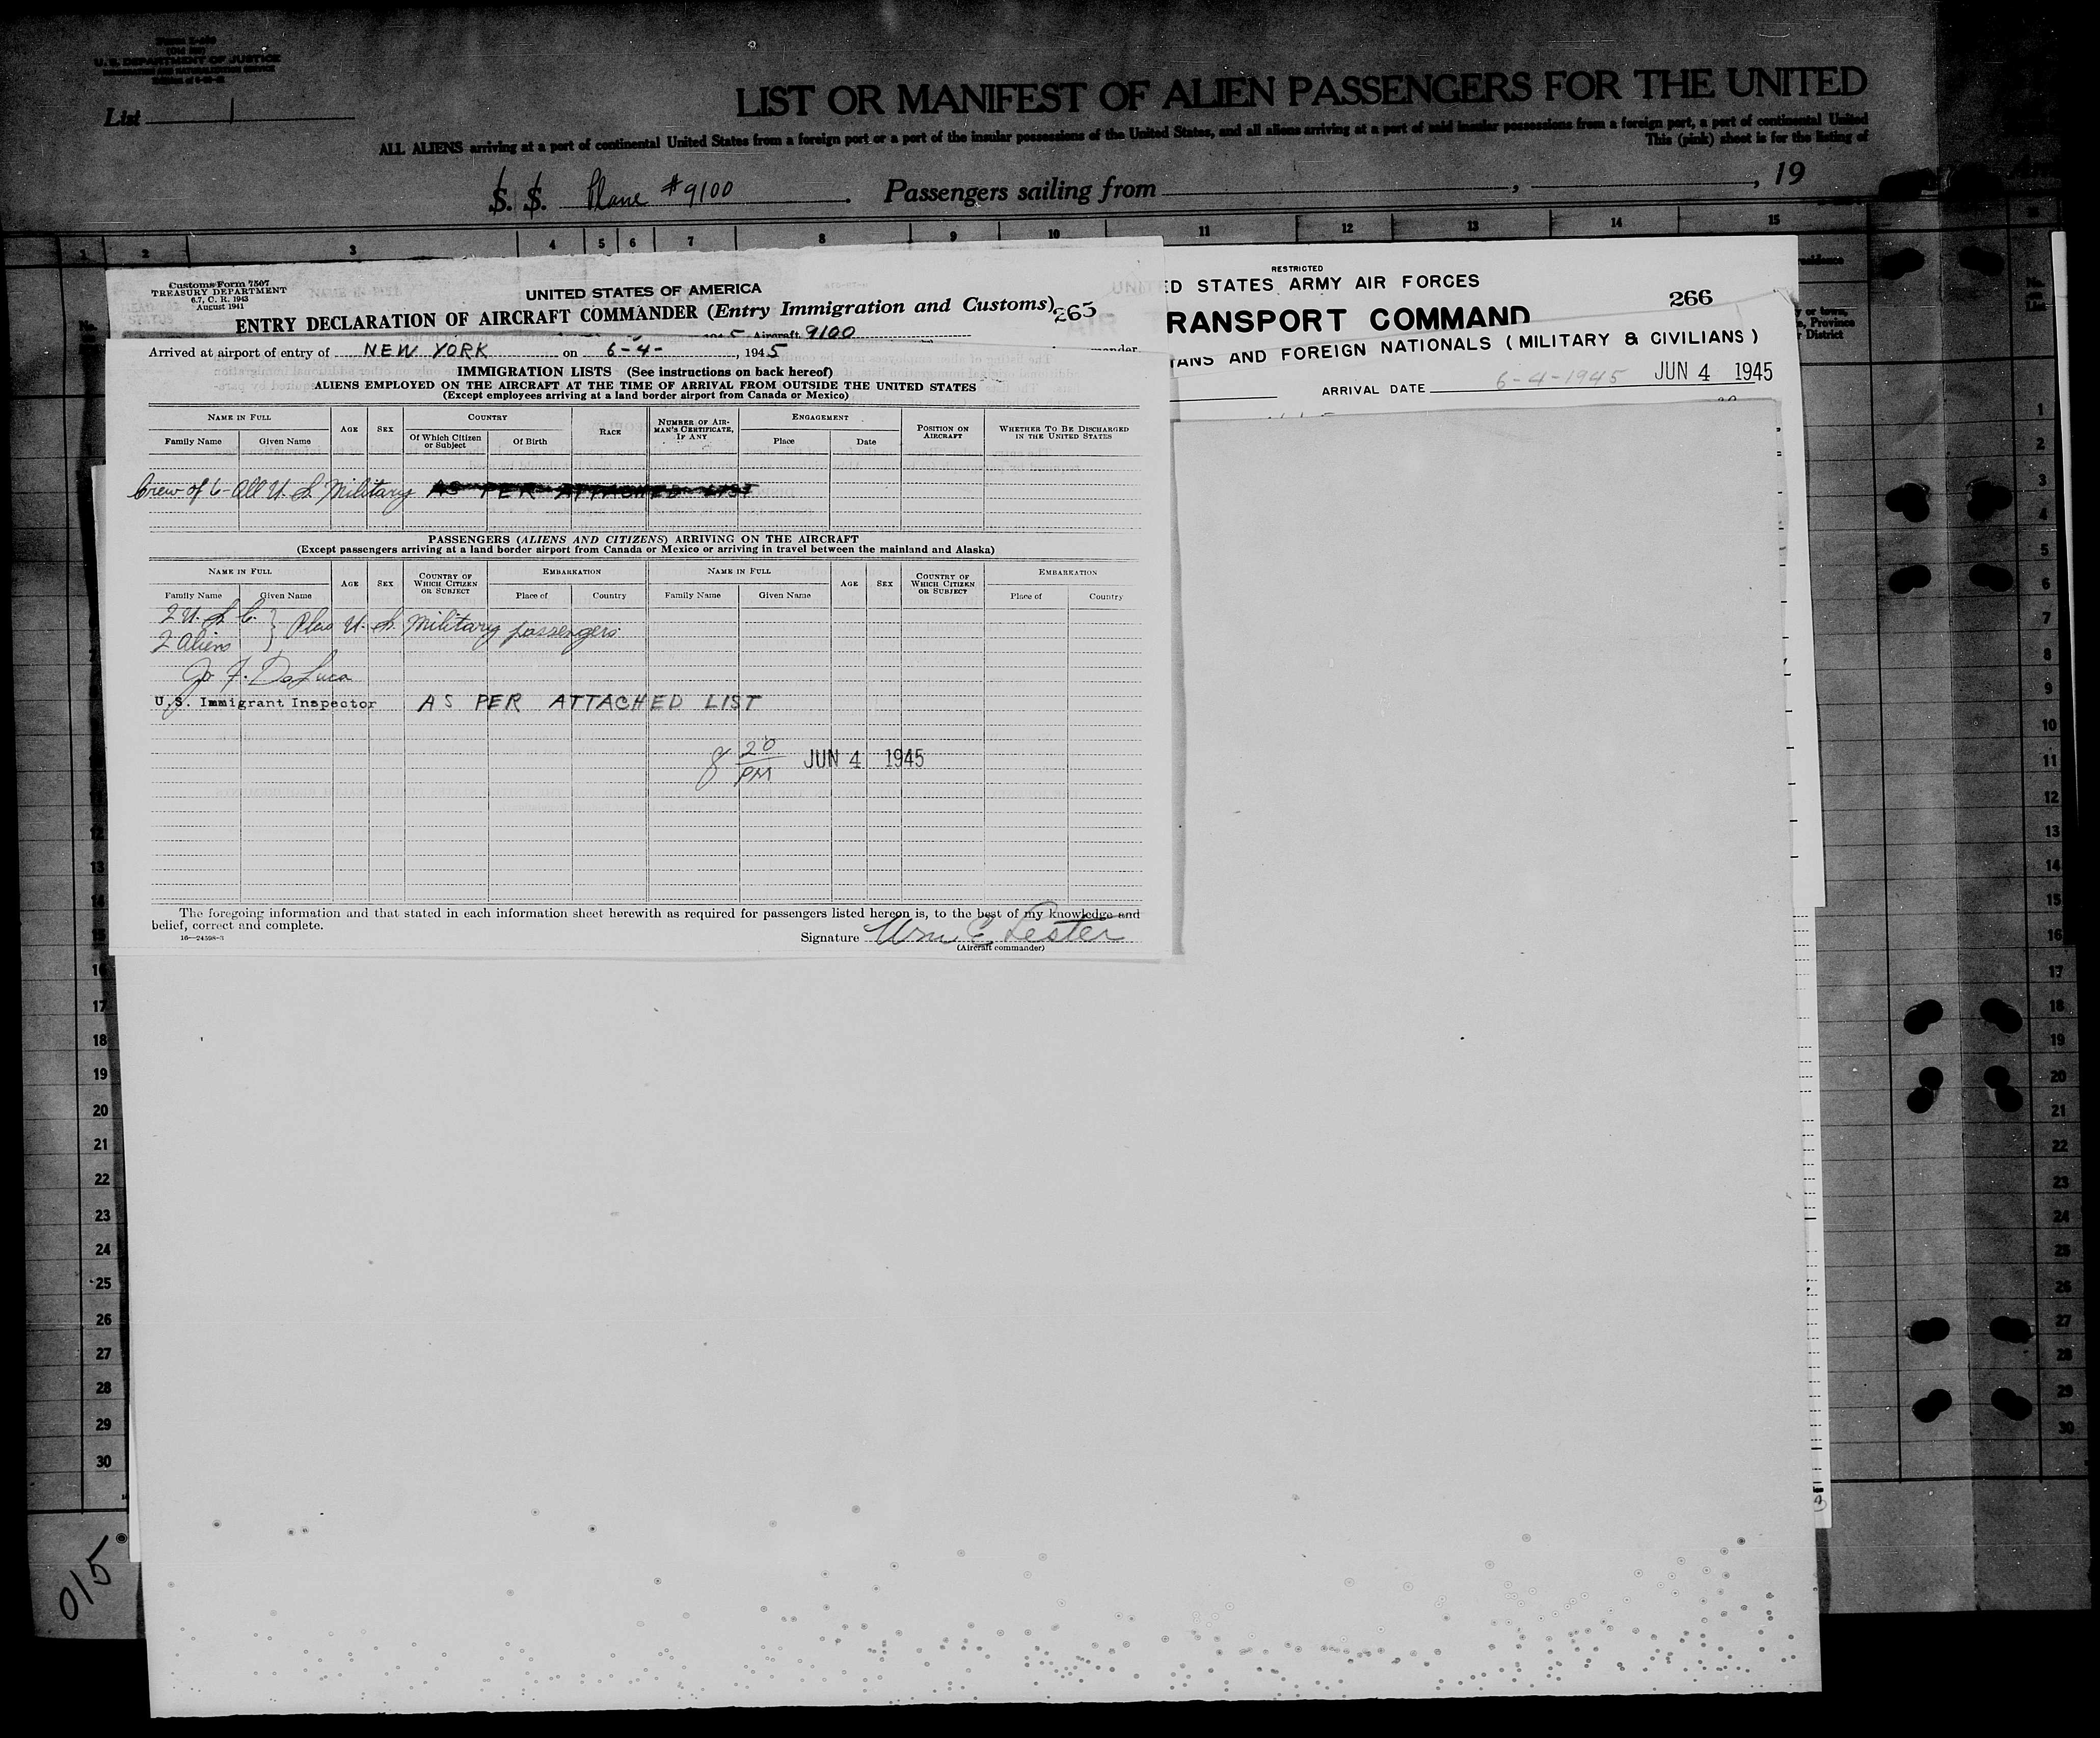 U. S. DEPARTMENT OF JUSTICE
List 1
LIST OR MANIFEST OF ALIEN PASSENGERS FOR THE UNITED
ALL ALIENS arriving at a port of continental United States from a foreign port or a port of the insular possessions of the United States, and all aliens arriving at a port of said insular possessions from a foreign port, a port of continental United
This (pink) sheet is for the listing of
S. S. Plane #9100. Passengers sailing from , , 19
1 2 3 4 5 6 7 8 9 10 11 12 13 14 15
Customs Form 7507
TREASURY DEPARTMENT
6.7, C. R. 1943
August 1941
UNITED STATES OF AMERICA
ENTRY DECLARATION OF AIRCRAFT COMMANDER (Entry Immigration and Customs)
265
Aircraft 9100
Arrived at airport of entry of NEW YORK on 6-4-, 1945
IMMIGRATION LISTS (See instructions on back hereof)
ALIENS EMPLOYED ON THE AIRCRAFT AT THE TIME OF ARRIVAL FROM OUTSIDE THE UNITED STATES
(Except employees arriving at a land border airport from Canada or Mexico)
NAME IN FULL AGE SEX COUNTRY RACE NUMBER OF AIRMAN'S CERTIFICATE, IF ANY ENGAGEMENT POSITION ON AIRCRAFT WHETHER TO BE DISCHARGED IN THE UNITED STATES
Family Name Given Name Of Which Citizen or Subject Of Birth Place Date
Crew of 6 - All U. S. Military AS PER ATTACHED LIST
PASSENGERS (ALIENS AND CITIZENS) ARRIVING ON THE AIRCRAFT
(Except passengers arriving at a land border airport from Canada or Mexico or arriving in travel between the mainland and Alaska)
NAME IN FULL AGE SEX COUNTRY OF WHICH CITIZEN OR SUBJECT EMBARKATION NAME IN FULL AGE SEX COUNTRY OF WHICH CITIZEN OR SUBJECT EMBARKATION
Family Name Given Name Place of Country Family Name Given Name Place of Country
2 U. S. C. } Plus U. S. Military passengers
2 Aliens
Jo. F. DeLuca
U.S. Immigrant Inspector AS PER ATTACHED LIST
8 20 PM JUN 4 1945
The foregoing information and that stated in each information sheet herewith as required for passengers listed hereon is, to the best of my knowledge and
belief, correct and complete.
16—24598-3
Signature Wm E. Lester
(Aircraft commander)
RESTRICTED
ED STATES ARMY AIR FORCES
266
RANSPORT COMMAND
IANS AND FOREIGN NATIONALS (MILITARY & CIVILIANS)
ARRIVAL DATE 6-4-1945 JUN 4 1945
12
13
14
15
16
17
18
19
20
21
22
23
24
25
26
27
28
29
30
1
2
3
4
5
6
7
8
9
10
11
12
13
14
15
16
17
18
19
20
21
22
23
24
25
26
27
28
29
30
015